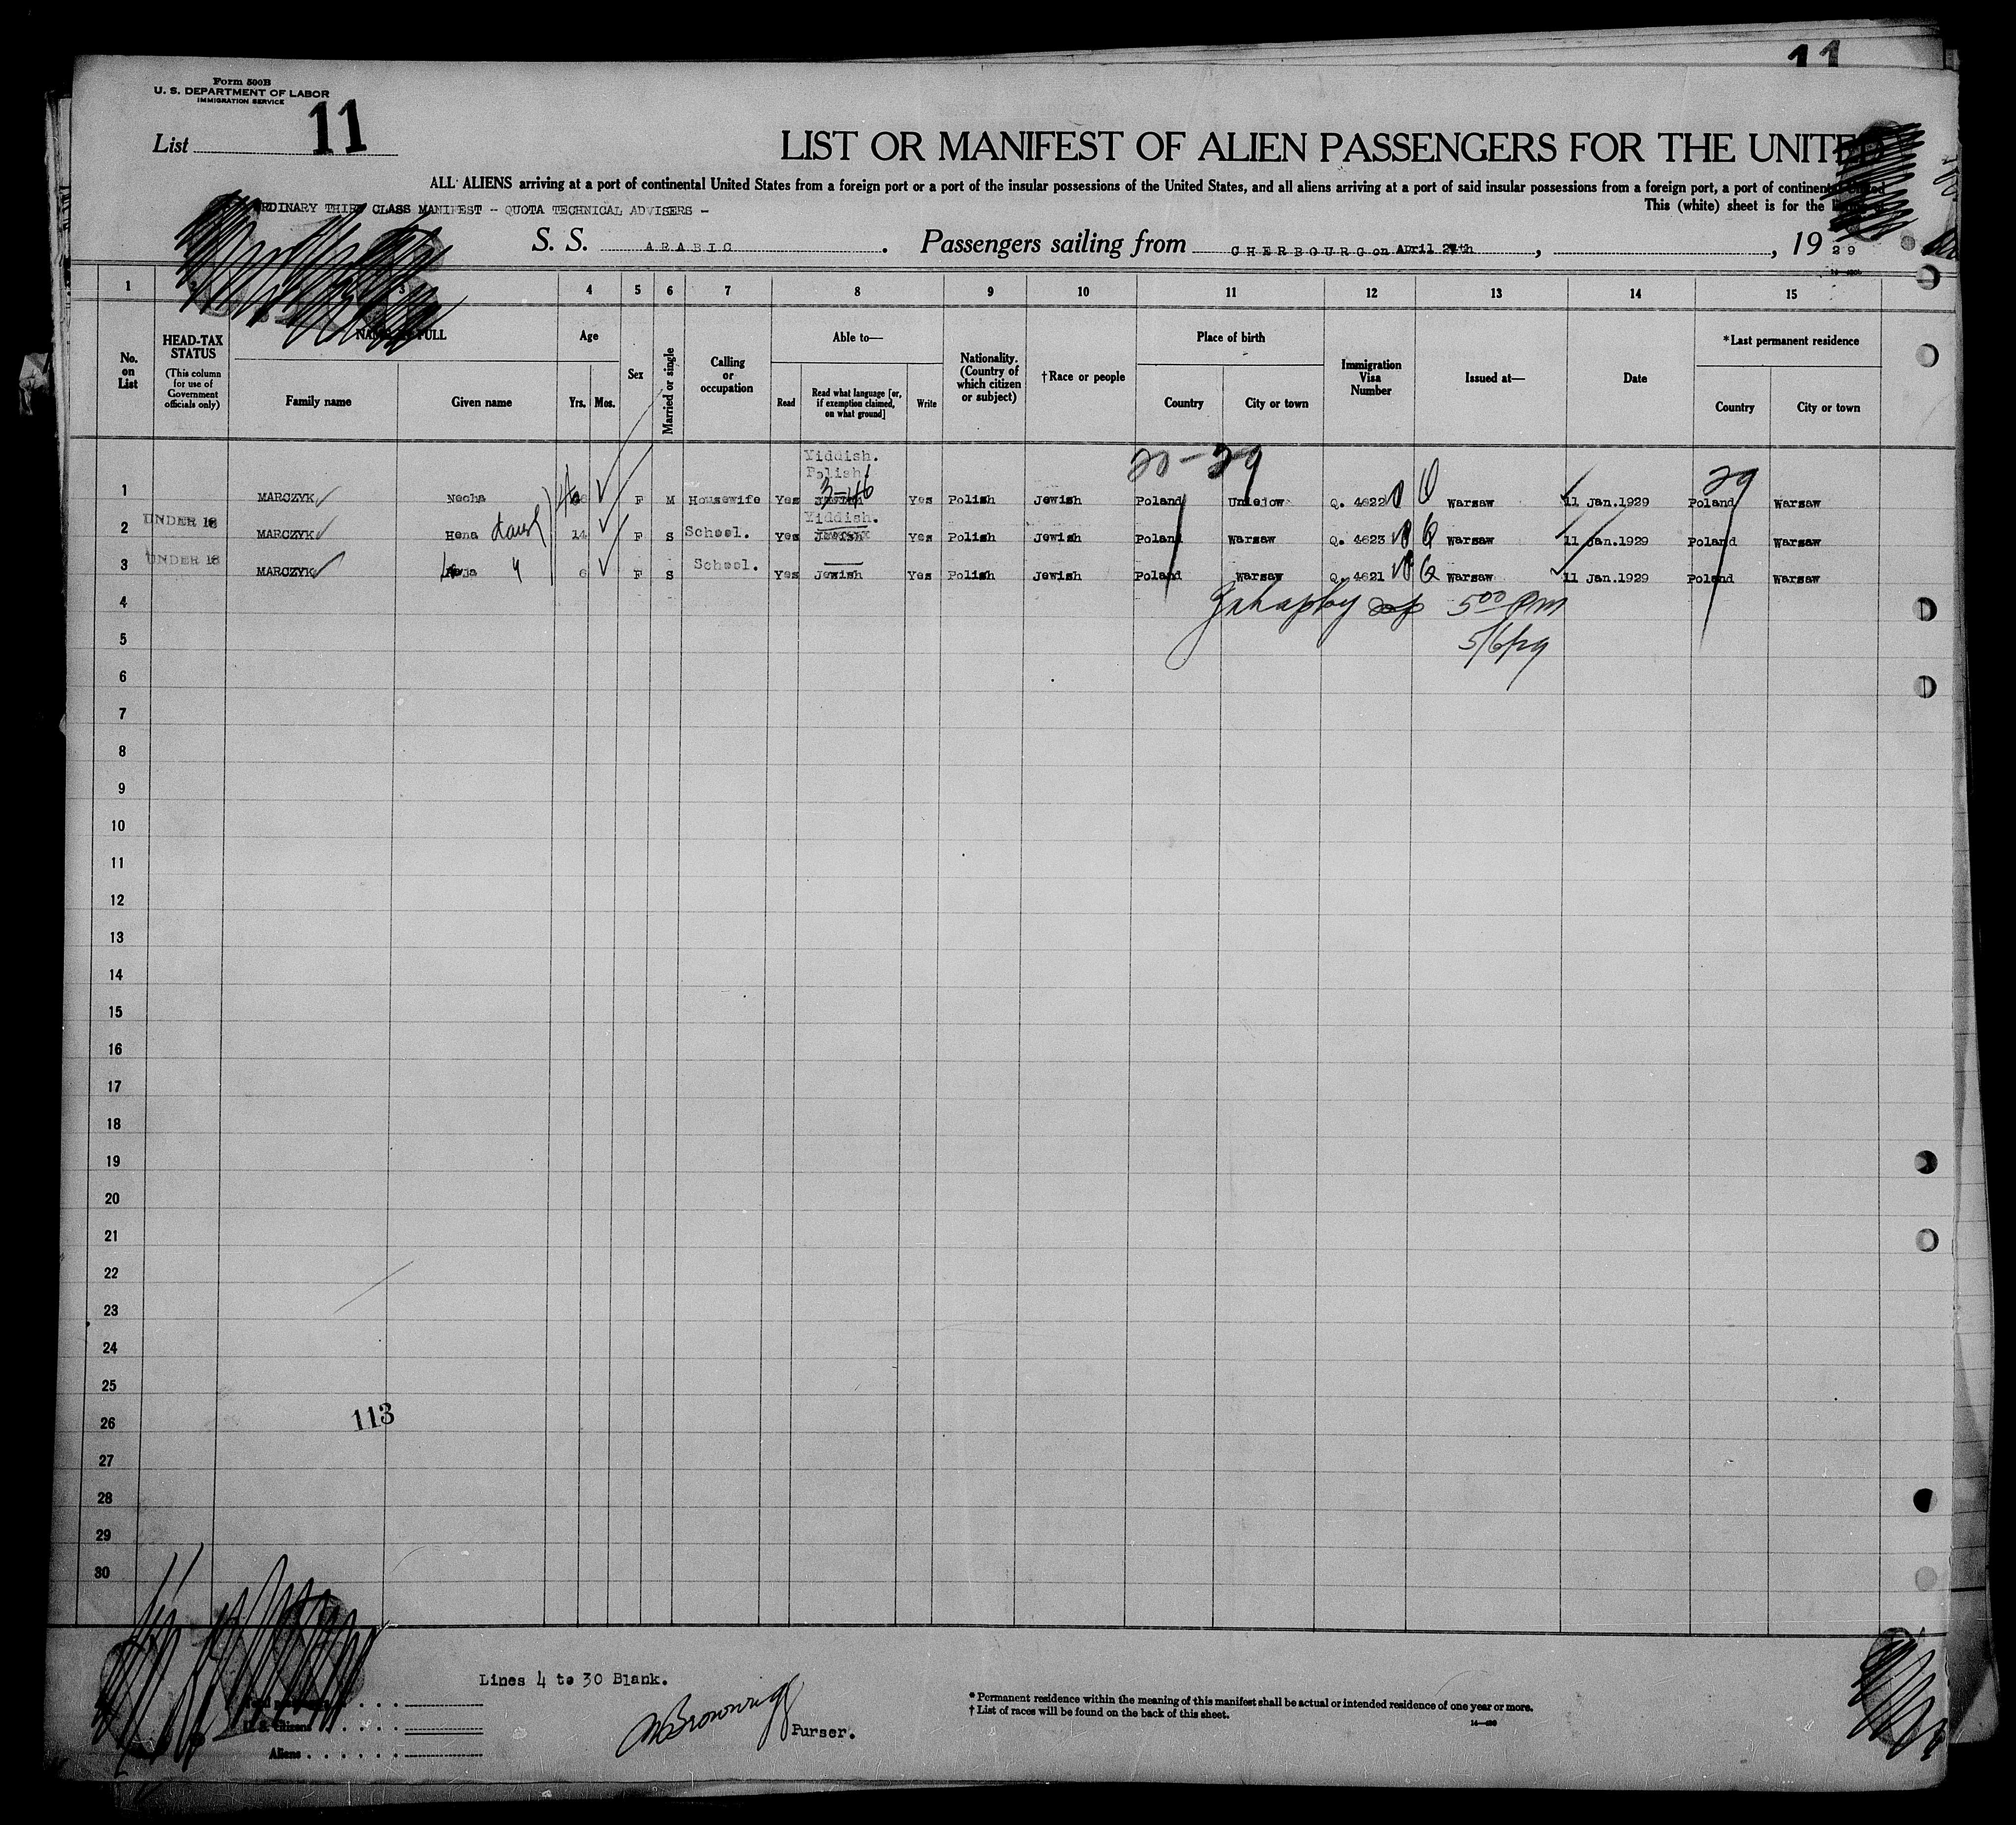 11
Form 500B
U. S. DEPARTMENT OF LABOR
IMMIGRATION SERVICE
List 11
LIST OR MANIFEST OF ALIEN PASSENGERS FOR THE UNITED
ALL ALIENS arriving at a port of continental United States from a foreign port or a port of the insular possessions of the United States, and all aliens arriving at a port of said insular possessions from a foreign port, a port of continental United
ORDINARY THIRD CLASS MANIFEST - QUOTA TECHNICAL ADVISERS - This (white) sheet is for the
S. S. ARABIC . Passengers sailing from CHERBOURG on April 27th , , 19 29
1 3 4 5 6 7 8 9 10 11 12 13 14 15
No. on List
HEAD-TAX STATUS (This column for use of Government officials only)
NAME IN FULL
Family name Given name
Age
Yrs. Mos.
Sex
Married or single
Calling or occupation
Able to—
Read
Read what language [or, if exemption claimed, on what ground]
Write
Nationality. (Country of which citizen or subject)
†Race or people
Place of birth
Country City or town
Immigration Visa Number
Issued at—
Date
*Last permanent residence
Country City or town
Yiddish. 20-29 29
Polish 3-46
1 MARCZYK Necha F M Housewife Yes Jewish Yes Polish Jewish Poland Uniejow Q. 4622 Warsaw 11 Jan.1929 Poland Warsaw
Yiddish.
2 UNDER 16 MARCZYK Hena 14 F S School. Yes Jewish Yes Polish Jewish Poland Warsaw Q. 4623 Warsaw 11 Jan.1929 Poland Warsaw
3 UNDER 16 MARCZYK 6 F S School. Yes Jewish Yes Polish Jewish Poland Warsaw Q. 4621 Warsaw 11 Jan.1929 Poland Warsaw
4 5 00 PM
5 5/6/29
6
7
8
9
10
11
12
13
14
15
16
17
18
19
20
21
22
23
24
25
26 113
27
28
29
30
Lines 4 to 30 Blank.
U. S. Citizens
Aliens
Browning Purser.
* Permanent residence within the meaning of this manifest shall be actual or intended residence of one year or more.
† List of races will be found on the back of this sheet.